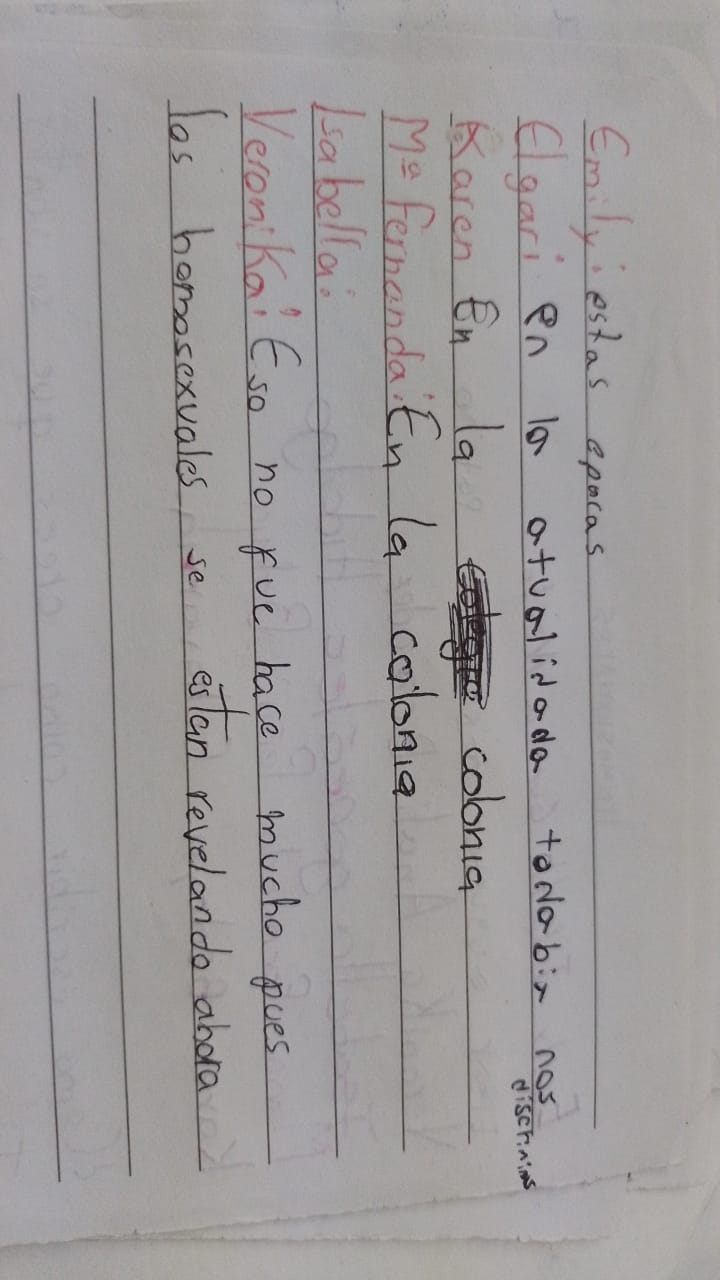 Emily: estas epocas
Elgari: en la atualidada todabia nos
discrimins
Karen En la colonia
Mª fernanda: En la colonia
Isabella:
Veronika: Eso no fue hace mucho pues
los homosexuales se estan revelando ahora